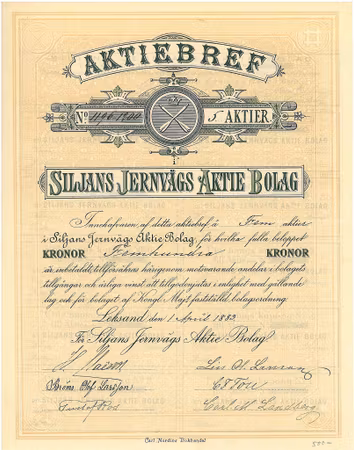 AKTIEBREF
No 1196-1200 5 AKTIER.
SILJANS JERNVÄGS AKTIE BOLAG
Innehafvaren af detta aktiebref å Fem aktier
i Siljans Jernvägs Aktie Bolag, för hvilka fulla beloppet
KRONOR Femhundra KRONOR
är inbetaldt, tillförsäkras härigenom motsvarande andelar i bolagets
tillgångar och årliga vinst att tillgodonjutas i enlighet med gällande
lag och för bolaget af Kongl. Maj:t fastställd bolagsordning.
Leksand den 1 April 1883.
För Siljans Jernvägs Aktie Bolag
Liss Ol. Larsson
Bröms Olof Larsson
Carl Landberg